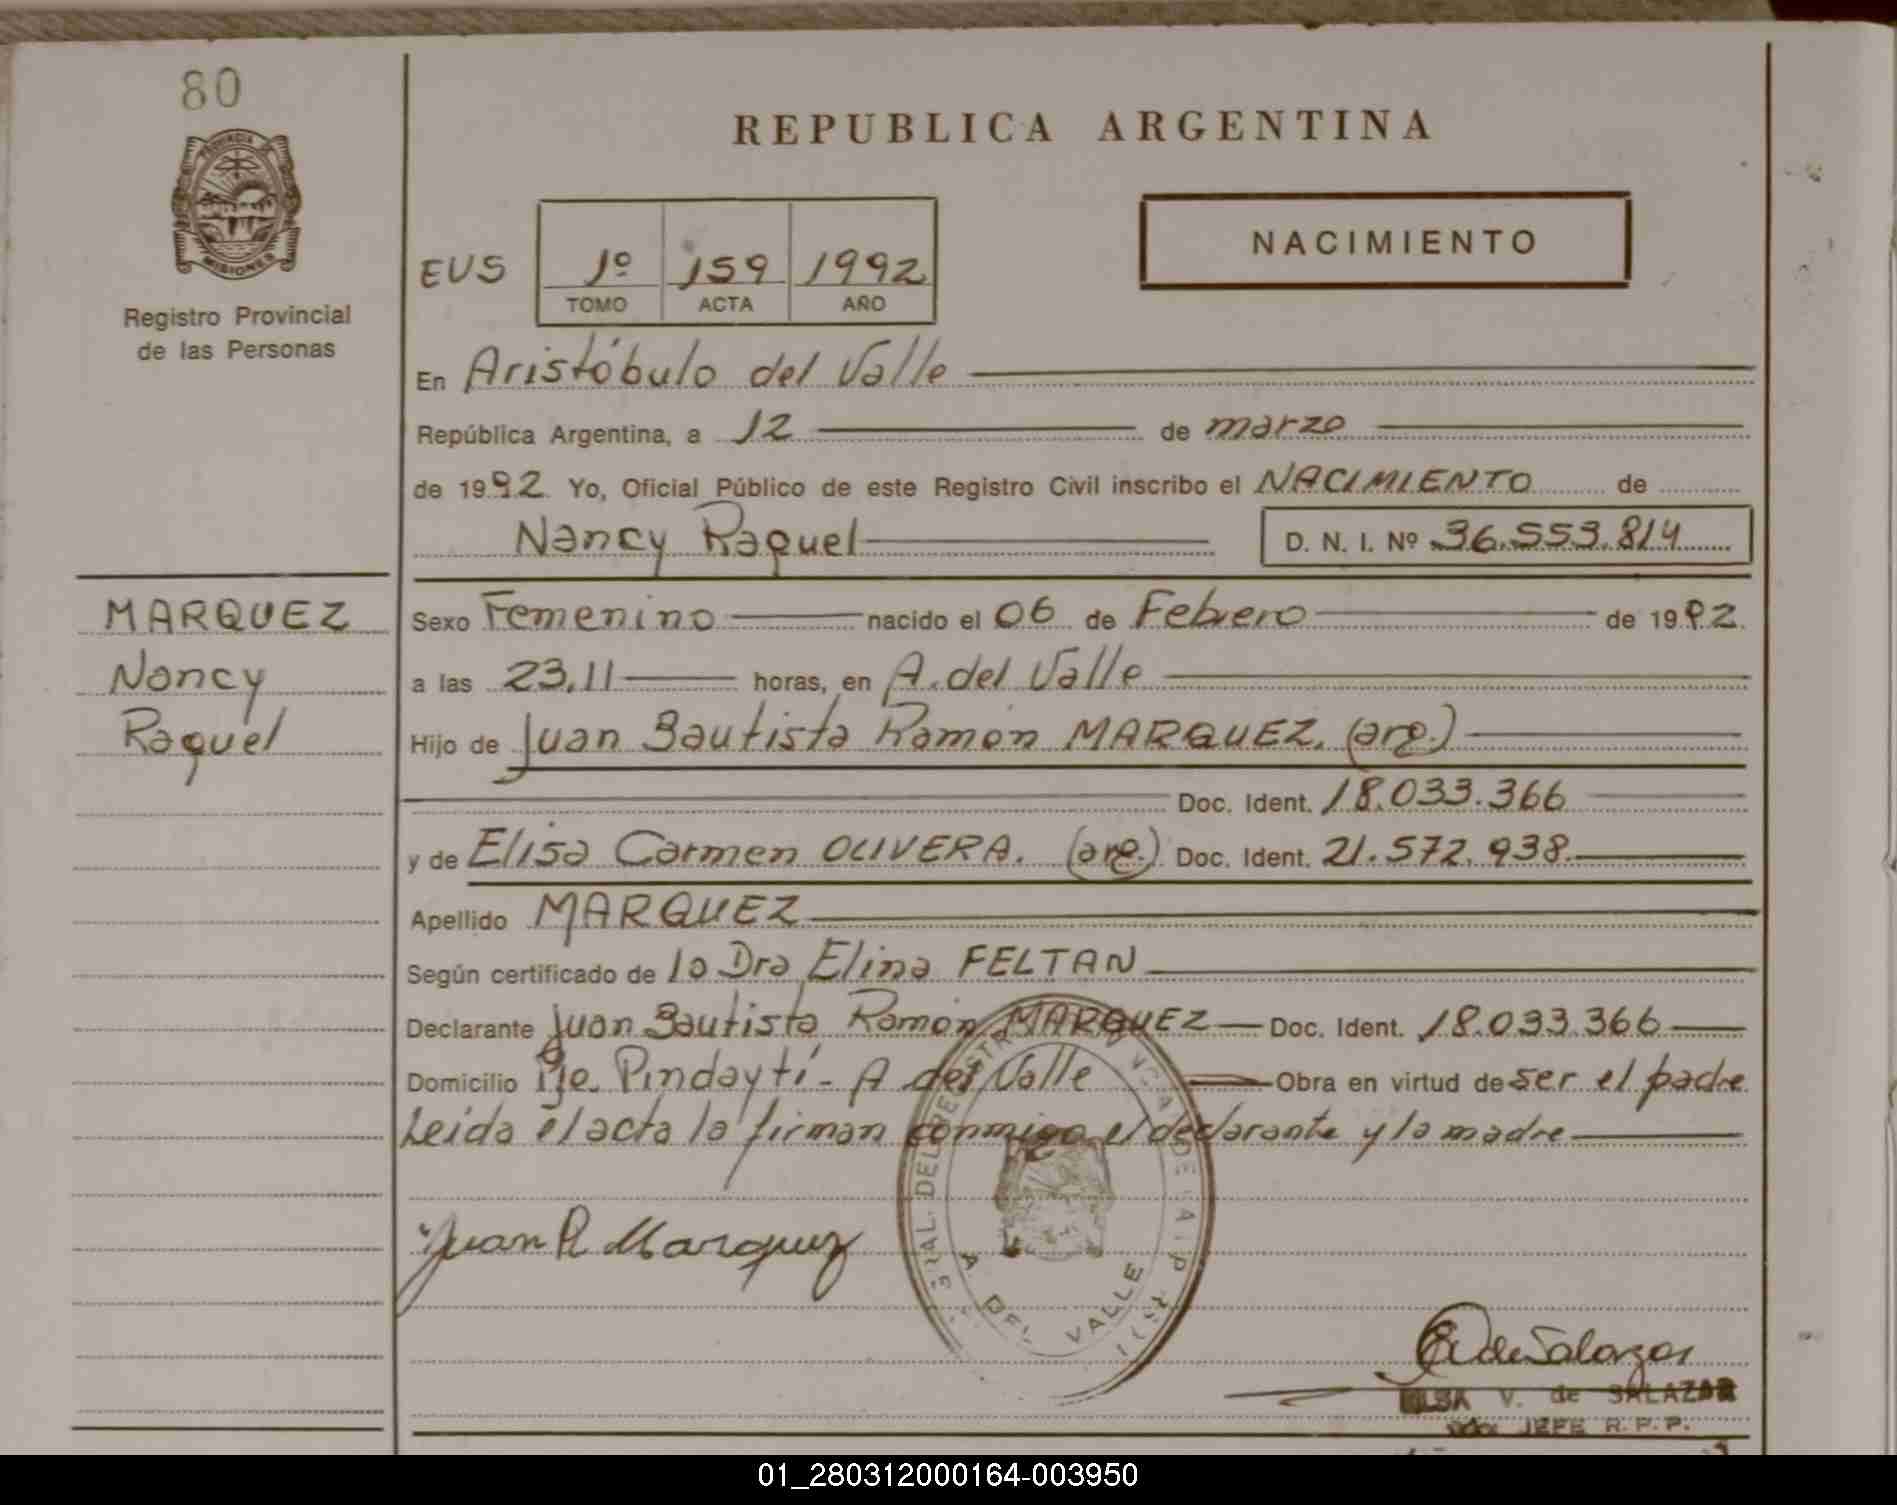 80
PROVINCIA
MISIONES
Registro Provincial
de las Personas
REPUBLICA ARGENTINA
NACIMIENTO
EUS 1º 159 1992
TOMO ACTA AÑO
En Aristóbulo del Valle
República Argentina, a 12 de marzo
de 1992 Yo, Oficial Público de este Registro Civil inscribo el NACIMIENTO de
Nancy Raquel D. N. I. Nº 36.553.814
MARQUEZ
Nancy
Raquel
Sexo Femenino nacido el 06 de Febrero de 1992
a las 23,11 horas, en A. del Valle
Hijo de Juan Bautista Ramón MARQUEZ. (arg.)
Doc. Ident. 18.033.366
y de Elisa Carmen OLIVERA. (arg.) Doc. Ident. 21.572.938
Apellido MARQUEZ
Según certificado de la Dra Elina FELTAN
Declarante Juan Bautista Ramón MARQUEZ Doc. Ident. 18.033.366
Domicilio Pje. Pindaytí - A del Valle Obra en virtud de ser el padre
Leida el acta la firman conmigo el declarante y la madre
Juan R Marquez
A. DEL VALLE
de Salazar
ELSA V. de SALAZAR
JEFE R.P.P.
01_280312000164-003950